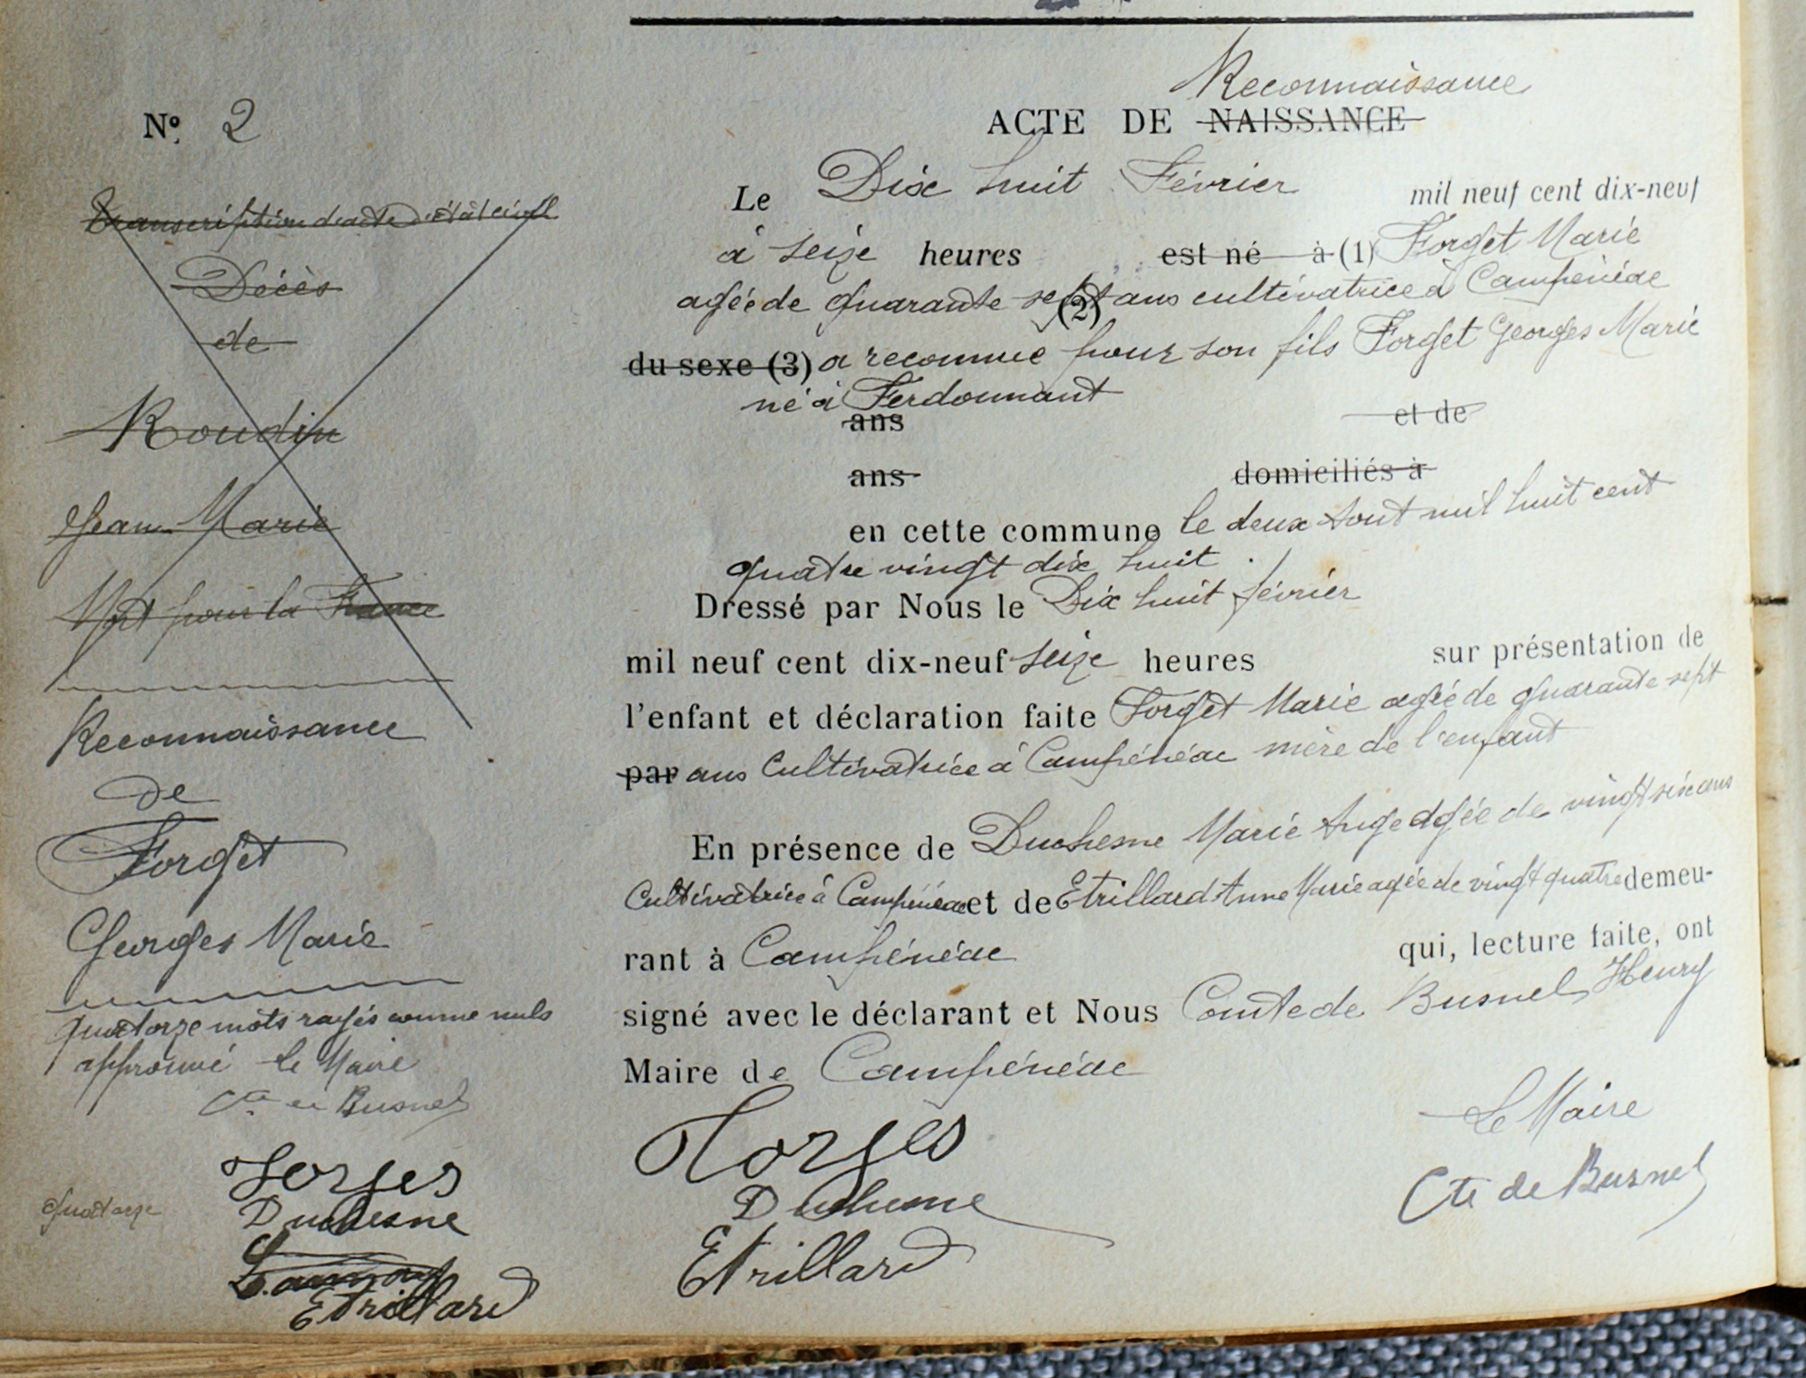 N° 2
Transcription d'acte d'état civil
Décès
de
Roudin
Jean Marie
Mort pour la France
Reconnaissance
de
Forget
Georges Marie
quatorze mots rayés comme nuls
approuvé le Maire
Cte de Busnel
Forges
Duchesne
quatorze
Etrillard
Reconnaissance
ACTE DE NAISSANCE
Le Dix huit Février mil neuf cent dix-neuf
à seize heures est né à (1) Forget Marie
agée de quarante sept (2) ans cultivatrice à Campénéac
du sexe (3) a reconnue pour son fils Forget Georges Marie
né à Ferdonnant
ans et de
ans domiciliés à
en cette commune le deux Aout mil huit cent
quatre vingt dix huit.
Dressé par Nous le Dix huit février
mil neuf cent dix-neuf seize heures sur présentation de
l'enfant et déclaration faite Forget Marie agée de quarante sept
par ans Cultivatrice à Campénéac mère de l'enfant
En présence de Duchesne Marie Ange agée de vingt six ans
Cultivatrice à Campénéac et de Etrillard Anne Marie agée de vingt quatre demeu-
rant à Campénéac qui, lecture faite, ont
signé avec le déclarant et Nous Comte de Busnel Henry
Maire de Campénéac
Forges
Duchesne
Etrillard
Le Maire
Cte de Busnel